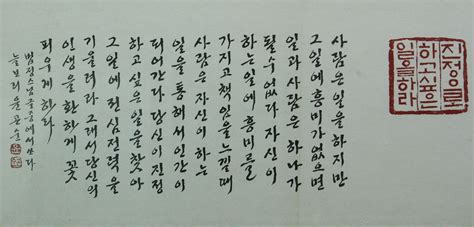 진정으로
하고싶은
일을하라
사람은 일을 하지만
그 일에 흥미가 없으면
일과 사람은 하나가
될 수 없다 자신이
하는 일에 흥미를
가지고 책임을 느낄 때
사람은 자신이 하는
일을 통해서 인간이
되어간다 당신이 진정
하고 싶은 일을 찾아
그 일에 전심전력을
기울여라 그래서 당신의
인생을 환하게 꽃
피우게 하라
법정스님 글 중에서 쓰다